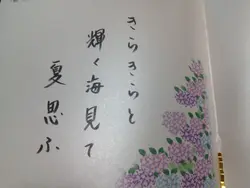 きらきらと
輝く海見て
夏思ふ